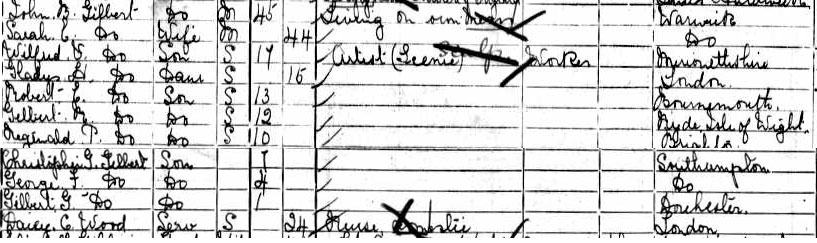 John B. Gilbert Do M 45 Living on own means Warwick
Sarah E. Do Wife M 44 Do
Wilfred S. Do Son S 17 Artist (Scenic) Worker Merionethshire
Gladys Do Daur S 15 London.
Robert E. Do Son S 13 Bournemouth.
Do Do S 12 Ryde, Isle of Wight.
Reginald P. Do Do S 10 Bristol
Christopher G. Gilbert Son 7 Southampton
George F. Do Do 4 Do
Gilbert G. Do Do 1 Dorchester.
Daisy E. Wood Serv S 24 Nurse Domestic London